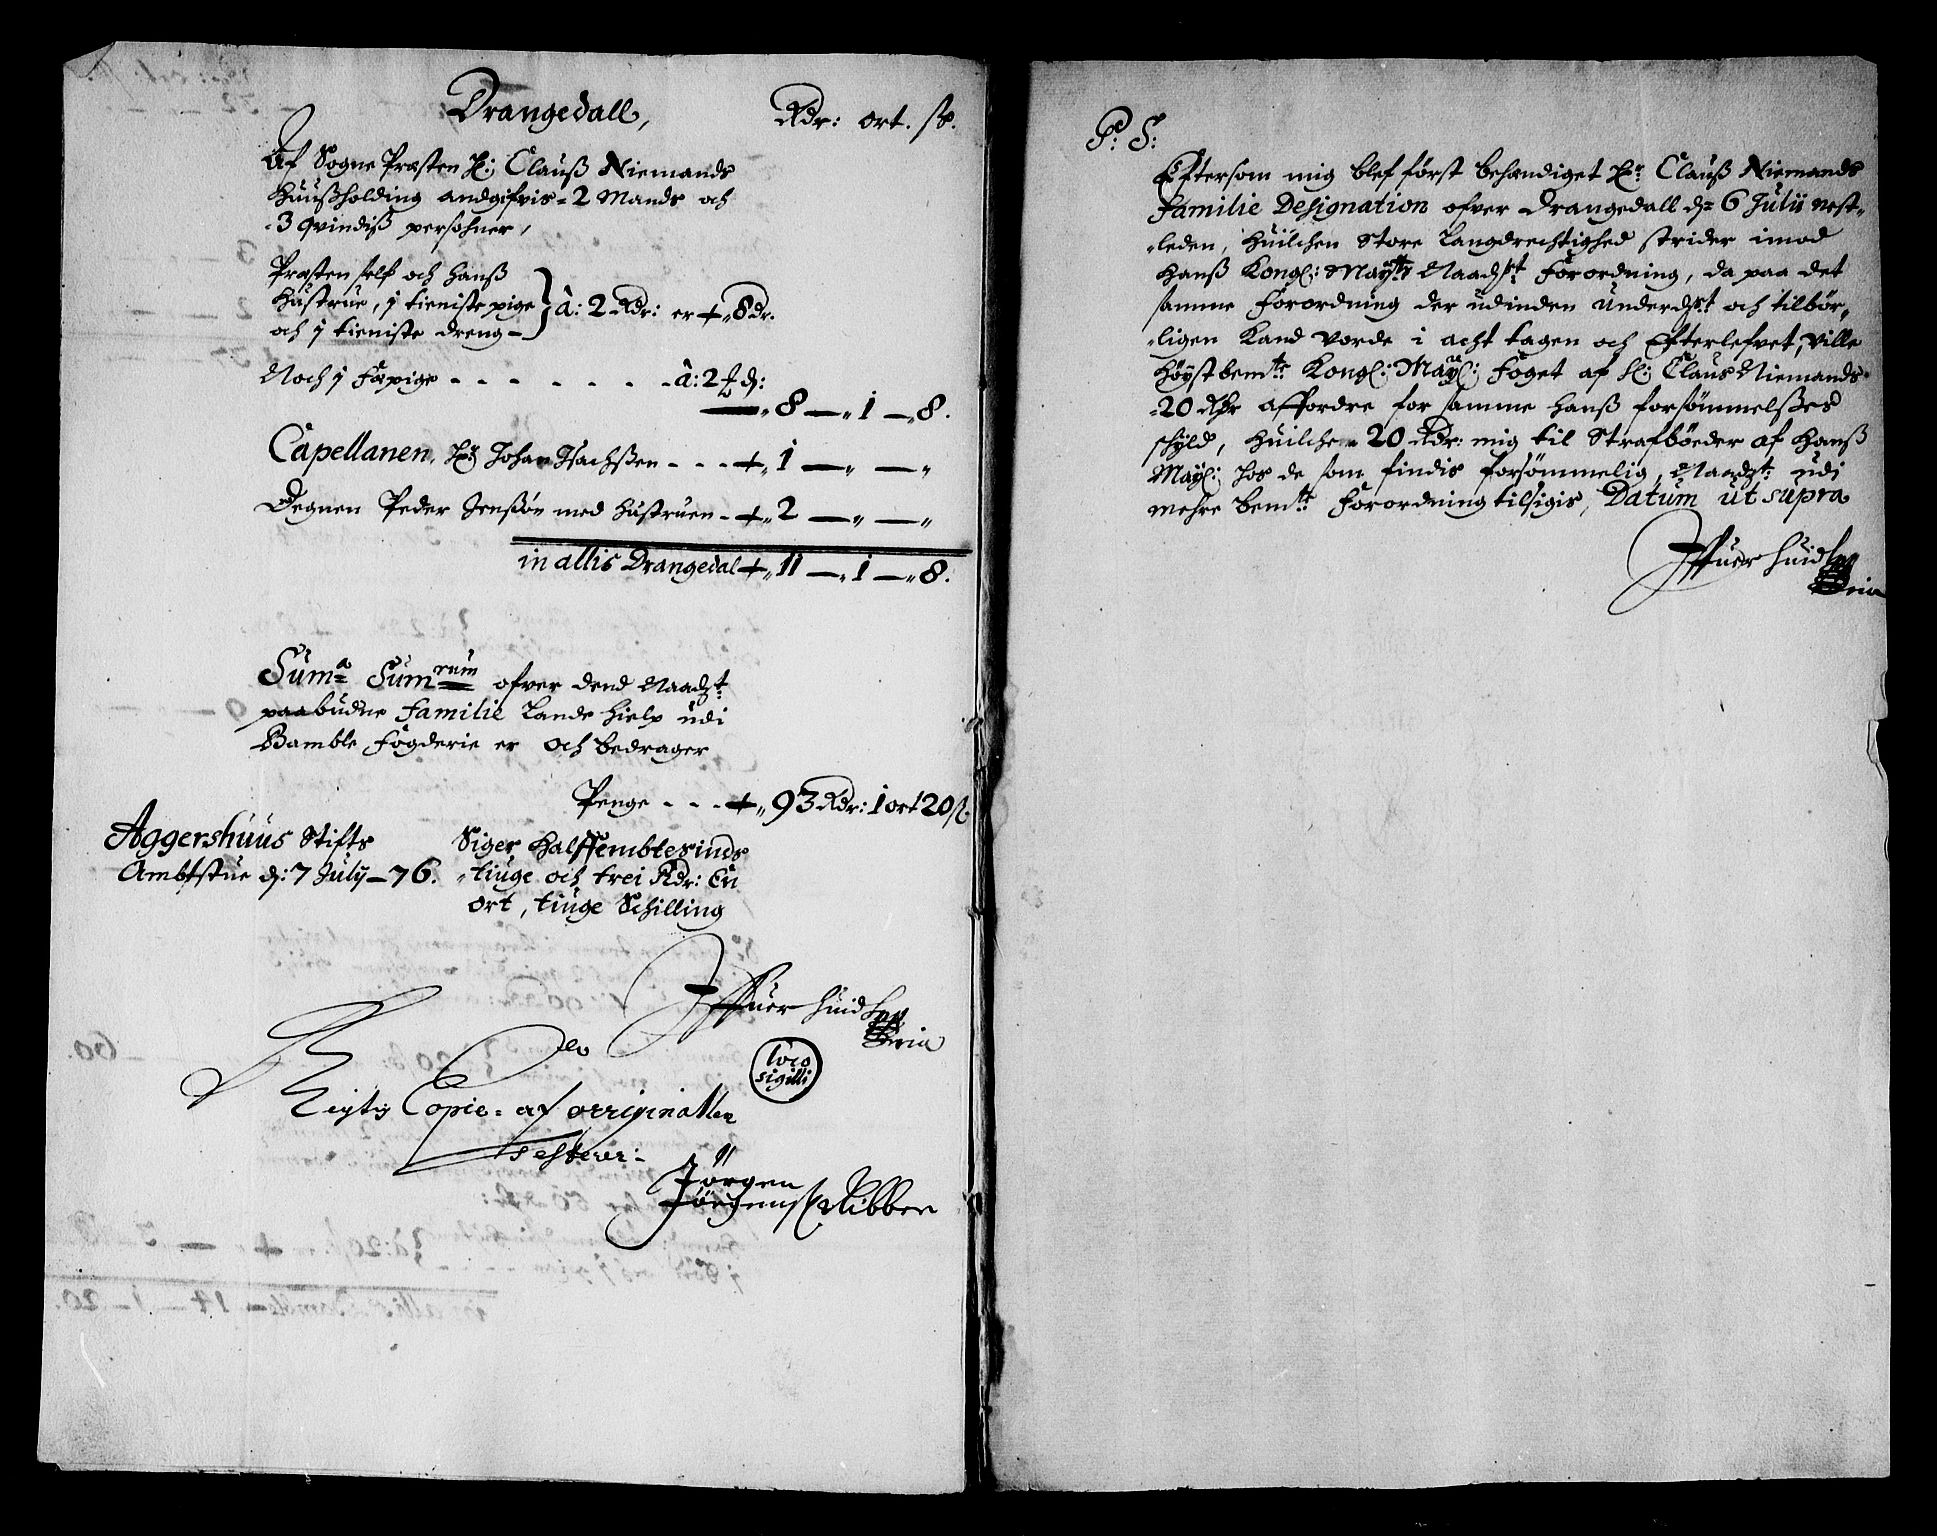 Drangedall, Rdr: ort. sk.
Af Sogne Præsten H: Clauß Niemands
Huußholding andgifvis 2 Mands och
3 qvindiß persohner,
Præsten self och hanß
Hustrue, j tieniste pige
och j tieniste dreng -
â: 2 Rdr: er + 8 dr.
Noch j Fæpige - - - - - - - â: 2½ ₰:
8 — 1 — 8.
Capellanen, Hr: Johan Isachßen - - - + 1 — " — "
Degnen Peder Jenßøn med hustruen - + 2 — " — "
in allis Drangedal + 11 — 1 — 8.
Suma Sumrum ofver dend Naadgst:
paabudne Familie Lande hielp udi
Bamble Fogderie er och bedrager
Penge - - - + 93 Rdr: 1 ort 20 sk
Aggershuus Stifts
Ambtstue d: 7 July - 76.
Siger Halffembtesinds
tiuge och trei Rdr: En
ort, tiuge Schilling
Iffuer Huid
loco
sigilli
Rigtig Copie af originallen
Testerer
Jörgen
Jörgens: Ribber
P: S:
Eftersom mig blef først behændiget Hr: Clauß Niemands
Familie Designation ofver Drangedall d: 6 Julii nest-
leden, Huilchen store Langdrechtighed strider imod
Hanß Kongl: Mayts Naadgst Forordning, da paa det
samme Forordning der udinden Underdgst och tilbør-
ligen Kand vorde i acht tagen och Efterlefvet, ville
Høystbemte Kongl: May: Foget af H: Claus Niemands
20 Rdr affordre for samme hanß forsømmelßes
schyld, Huilche 20 Rdr: mig til Strafbøeder af Hanß
May: hos de som findis forsømmelig, Naadgst: udi
mehre bemte Forordning tilsigis, Datum ut supra
Iffuer Huid